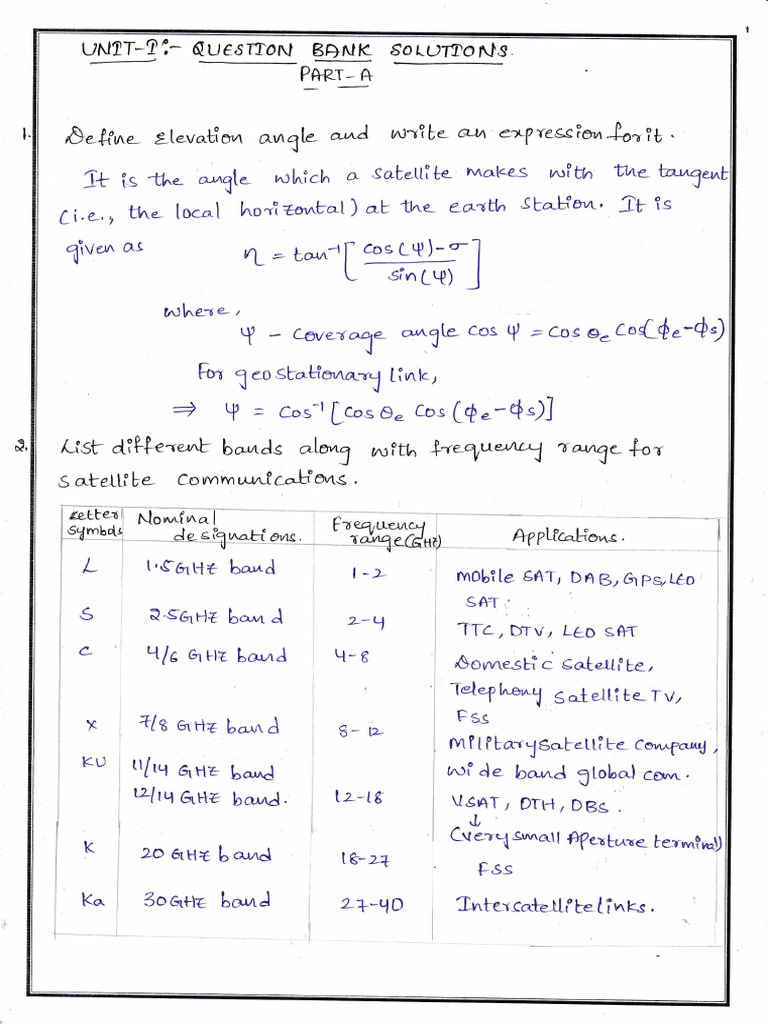 1
UNIT-I:- QUESTION BANK SOLUTIONS.
PART-A
1. Define Elevation angle and write an expression for it.
It is the angle which a satellite makes with the tangent
(i.e., the local horizontal) at the earth station. It is
given as η = tan⁻¹[cos(ψ)-σ / sin(ψ)]
where,
ψ - coverage angle cos ψ = cos θe cos(ϕe-ϕs)
For geostationary link,
⇒ ψ = cos⁻¹[cos θe cos (ϕe-ϕs)]
2. List different bands along with frequency range for
satellite communications.
Letter symbols Nominal designations. Frequency range(GHz) Applications.
L 1.5GHz band 1-2 Mobile SAT, DAB, GPS, LEO
SAT.
S 2.5GHz band 2-4 TTC, DTV, LEO SAT
C 4/6 GHz band 4-8 Domestic satellite,
Telephony satellite TV,
FSS
X 7/8 GHz band 8-12 Military satellite company,
KU 11/14 GHz band wide band global com.
12/14 GHz band. 12-18 VSAT, DTH, DBS.
↓
(Very small Aperture terminal)
K 20 GHz band 18-27 FSS
Ka 30GHz band 27-40 Intersatellite links.